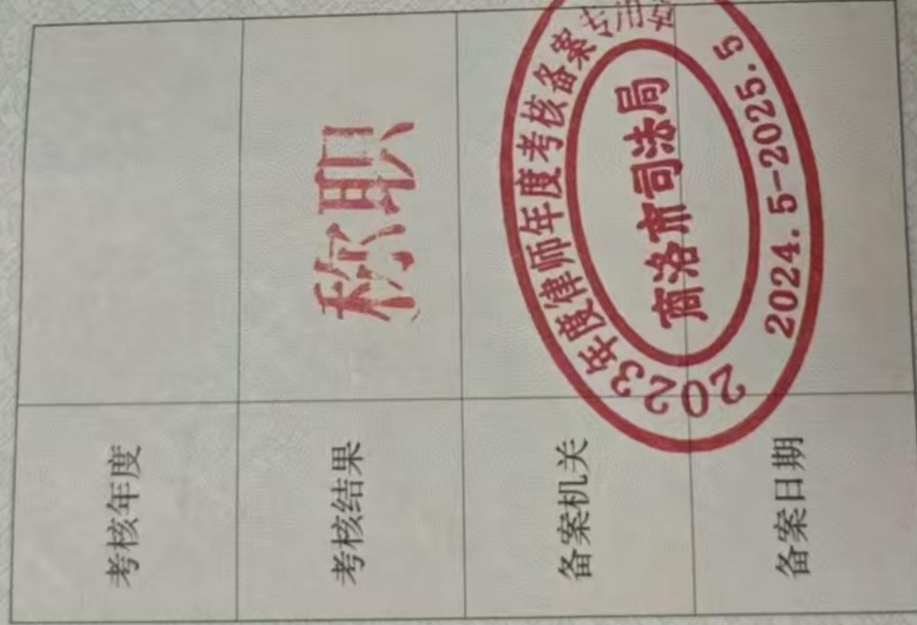 考核年度
考核结果
称职
备案机关
备案日期
2023年度律师年度考核备案专用章
商洛市司法局
2024.5-2025.5